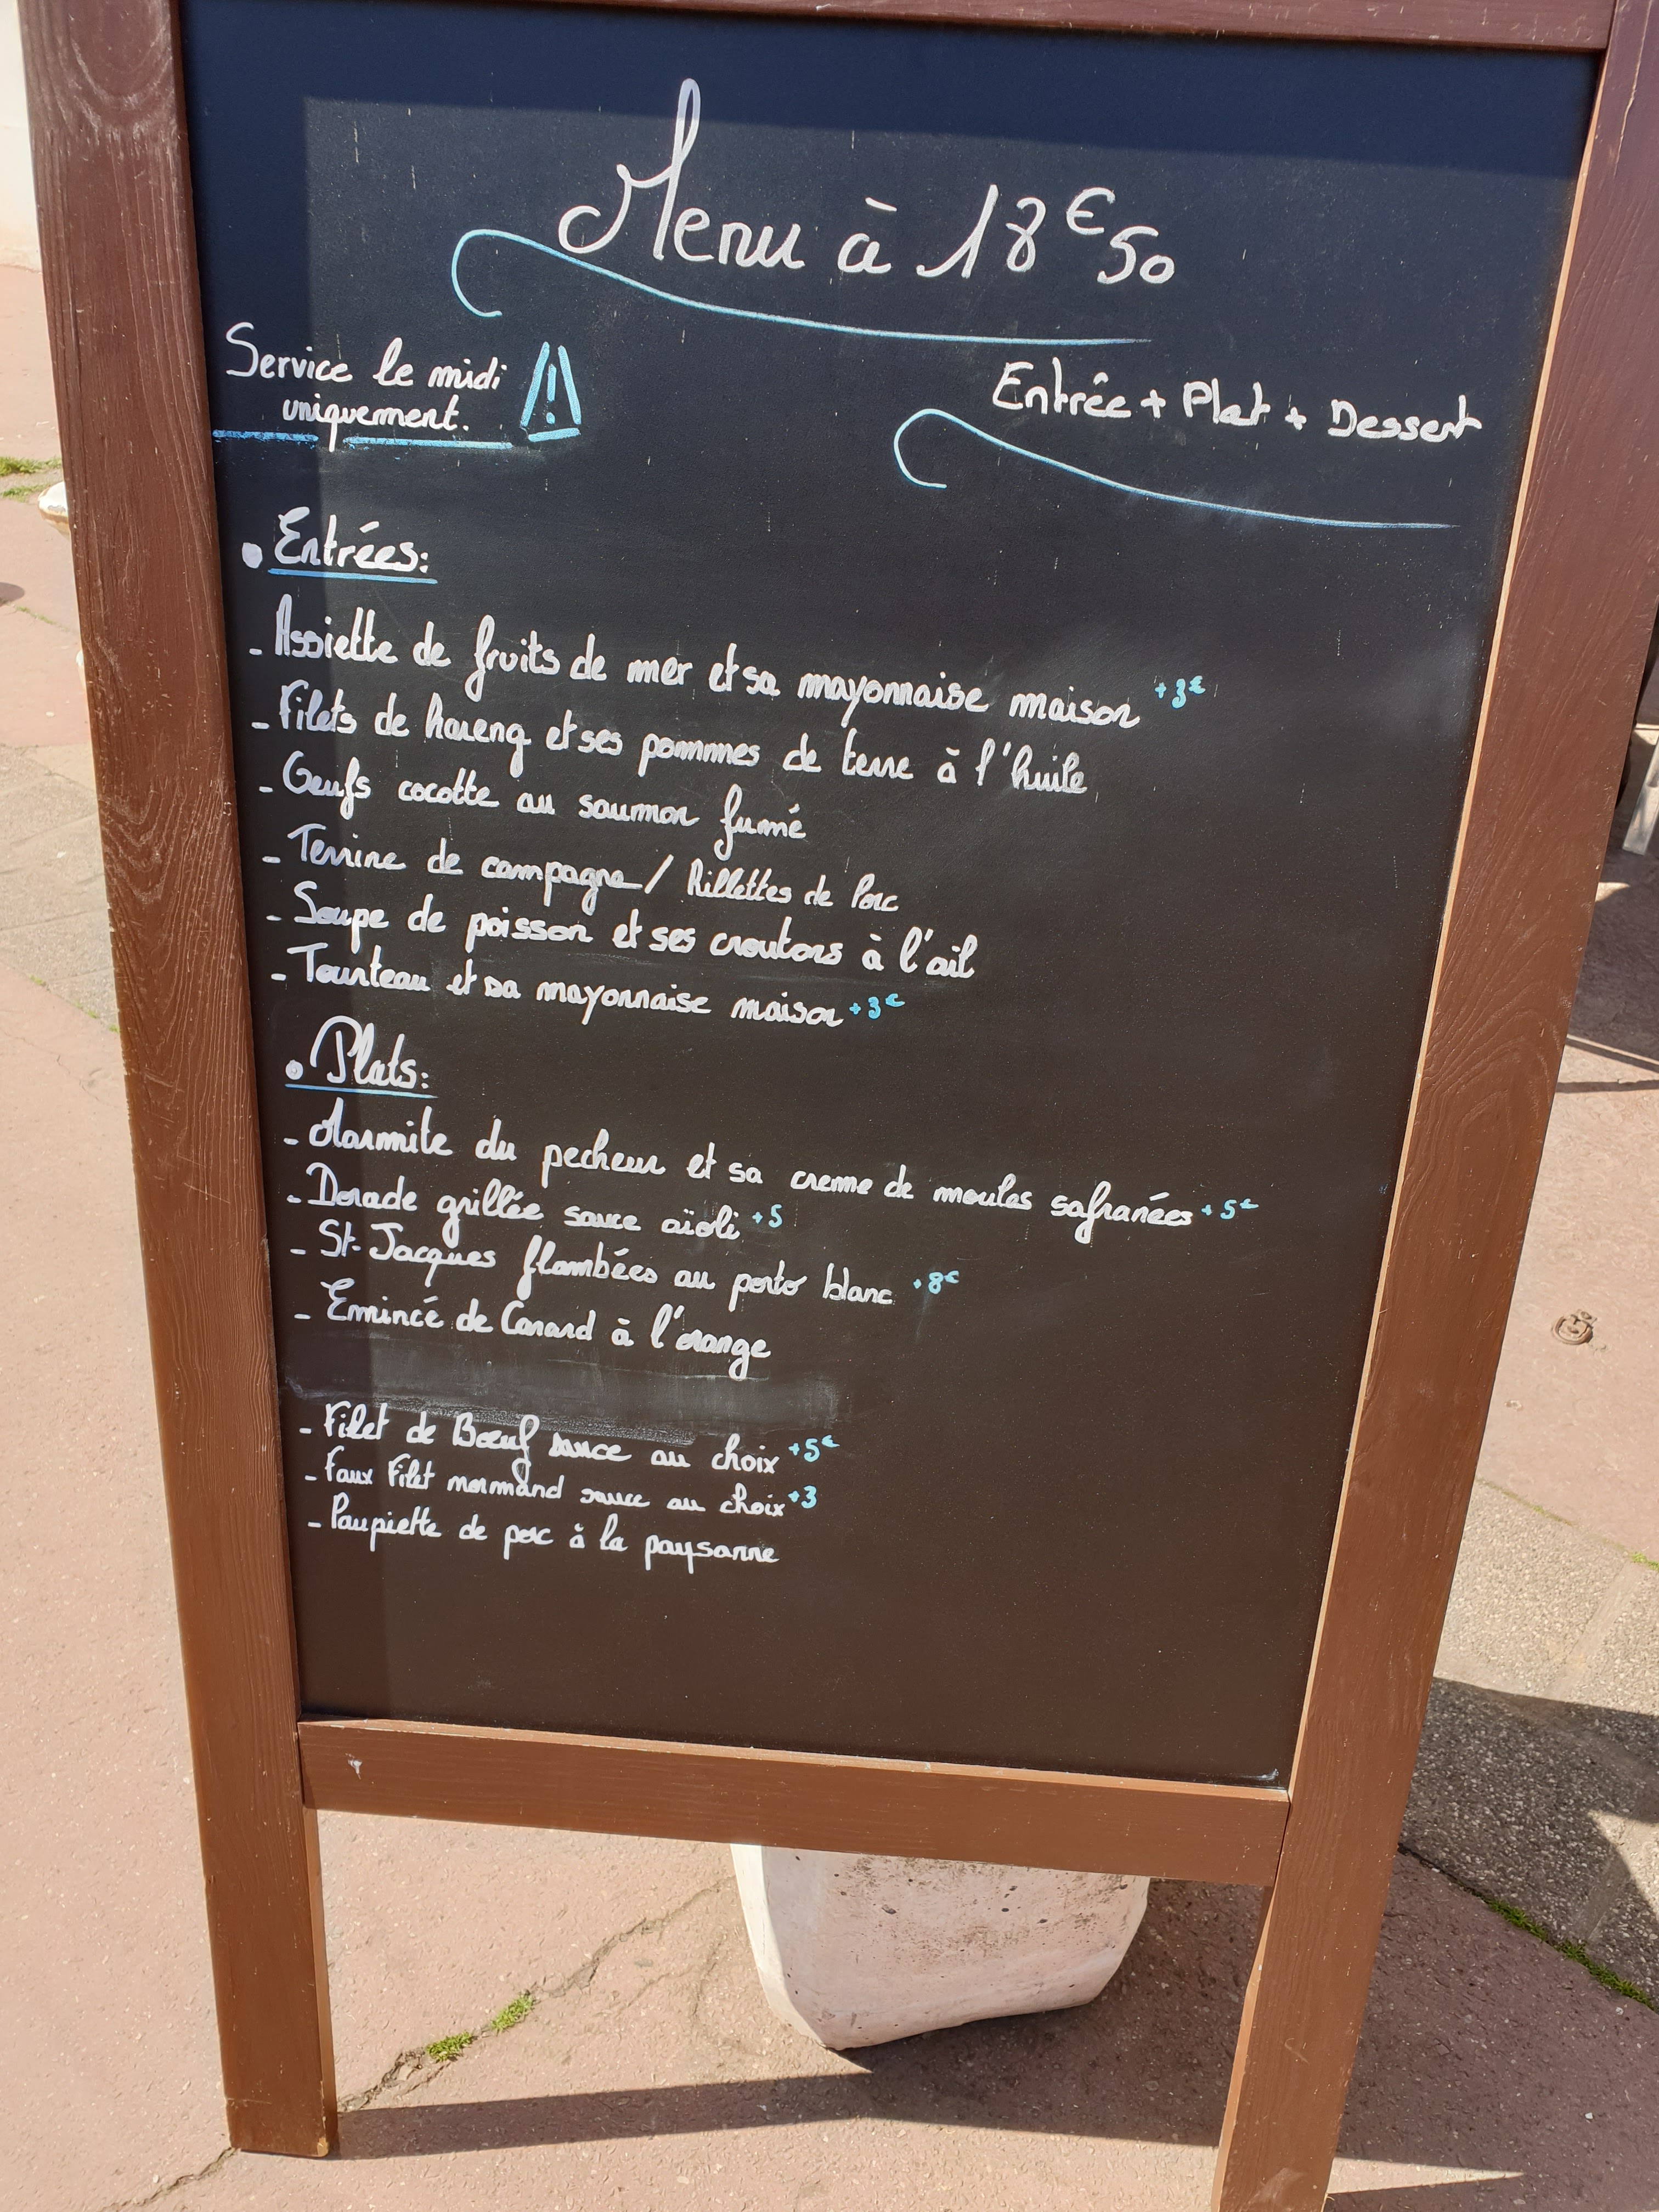 Menu à 18€50
Service le midi
uniquement.
Entrée + Plat + Dessert
• Entrées:
- Assiette de fruits de mer et sa mayonnaise maison +3€
- Filets de hareng et ses pommes de terre à l'huile
- Oeufs cocotte au saumon fumé
- Terrine de campagne / Rillettes de Porc
- Soupe de poisson et ses croutons à l'ail
- Tourteau et sa mayonnaise maison +3€
• Plats:
- Marmite du pecheur et sa creme de moules safranées +5€
- Dorade grillée sauce aïoli +5
- St-Jacques flambées au porto blanc +8€
- Emincé de Canard à l'orange
- Filet de Bœuf sauce au choix +5€
- Faux Filet normand sauce au choix +3
- Paupiette de porc à la paysanne